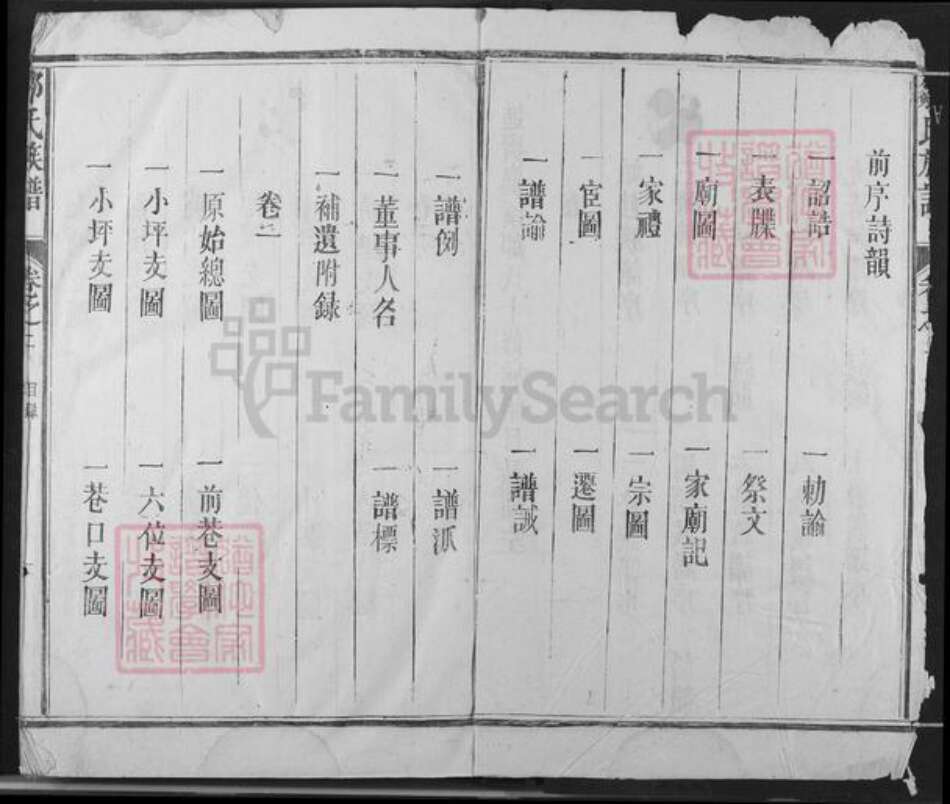 前序詩韻
一詔誥
一勅諭
一表牒
一祭文
一廟圖
一家廟記
一家禮
一宗圖
一宦圖
一遷圖
一譜論
一譜誡
一譜例
一譜派
一董事人名
一譜標
一補遺附録
卷二
一原始總圖
一前巷支圖
一小坪支圖
一六位支圖
一小坪支圖
一巷口支圖
氏族譜
卷之
目録
FamilySearch